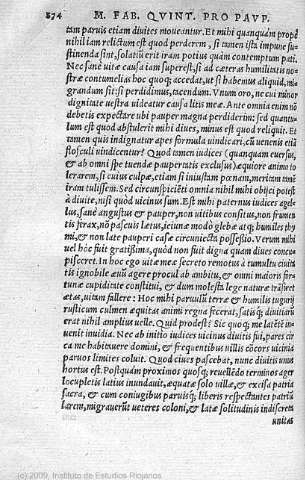 874 M. FAB. QVINT. PRO PAVP.
tam paruis etiam diuites moueantur. Et mihi quanquàm propè
nihil iam relictum est quod perderem, si tamen ista impune su-
stinenda sint, solatij erit iram potius quàm contemptum pati.
Nec sanè vitæ causa iam superest, si ad cæteras humilitatis no-
stræ contumelias hoc quoq; accedat, ut si habemus aliquid, mi-
grandum sit: si perdidimus, tacendum. Vnum oro, ne cui minor
dignitate uestra uideatur causa litis meæ. Ante omnia enim nō
debetis expectare ubi pauper magna perdiderim: sed quantu-
lum est quod abstulerit mihi diues, minus est quod reliquit. Et
tamen quis indignatur apes formula vindicari, cū uenenis etiā
flosculi vindicentur? Quod tamen iudices (quanquam euersus,
& ab omni spe tuendæ paupertatis exclusus) æquiore animo to
lerarem, si cuius culpæ, etiam si iniustam pœnam, meritam tamen
iram tulissem. Sed circunspiciēti omnia nihil mihi obijci potest
à diuite, nisi quòd uicinus sum. Est mihi paternus iudices agel-
lus, sanè angustus & pauper, non uitibus consitus, non frumen-
tis ferax, nō pascuis lætus, ieiunæ modò glebæ atq; humiles thy
mi, & non latè pauperi casæ circuiecta possessio. Verùm mihi
uel hoc fuit gratissima, quòd non fuit digna quam diues concu-
pisceret. In hoc ego uitæ meæ secreto remotus à tumultu ciuita-
tis ignobile æuū agere procul ab ambitu, & omni maioris for-
tunæ cupiditate constitui, & dum molesta lege naturæ trāsiret
ætas, uitam fallere: Hoc mihi paruulū terræ & humilis tugurij
rusticum culmen æquitas animi regna fecerat, satisq; diuitiarū
erat nihil amplius uelle. Quid prodest? Sic quoq; me latētē in-
uenit inuidia. Nec ab initio iudices uicinus diuitis fui, pares cir
ca me habitauere domini, & frequentibus uillis cōcors uicinia
paruos limites coluit. Quod ciues pascebat, nunc diuitis unus
hortus est. Postquàm proximos quosq; reuellēdo terminos ager
locupletis latius inundauit, æquatæ solo uillæ, & excisa patria
sacra, & cum coniugibus paruisq́; liberis respectantes patriū
larem, migrauerūt ueteres coloni, & latæ solitudinis indiscreta
unitas
(c) 2009, Instituto de Estudios Riojanos